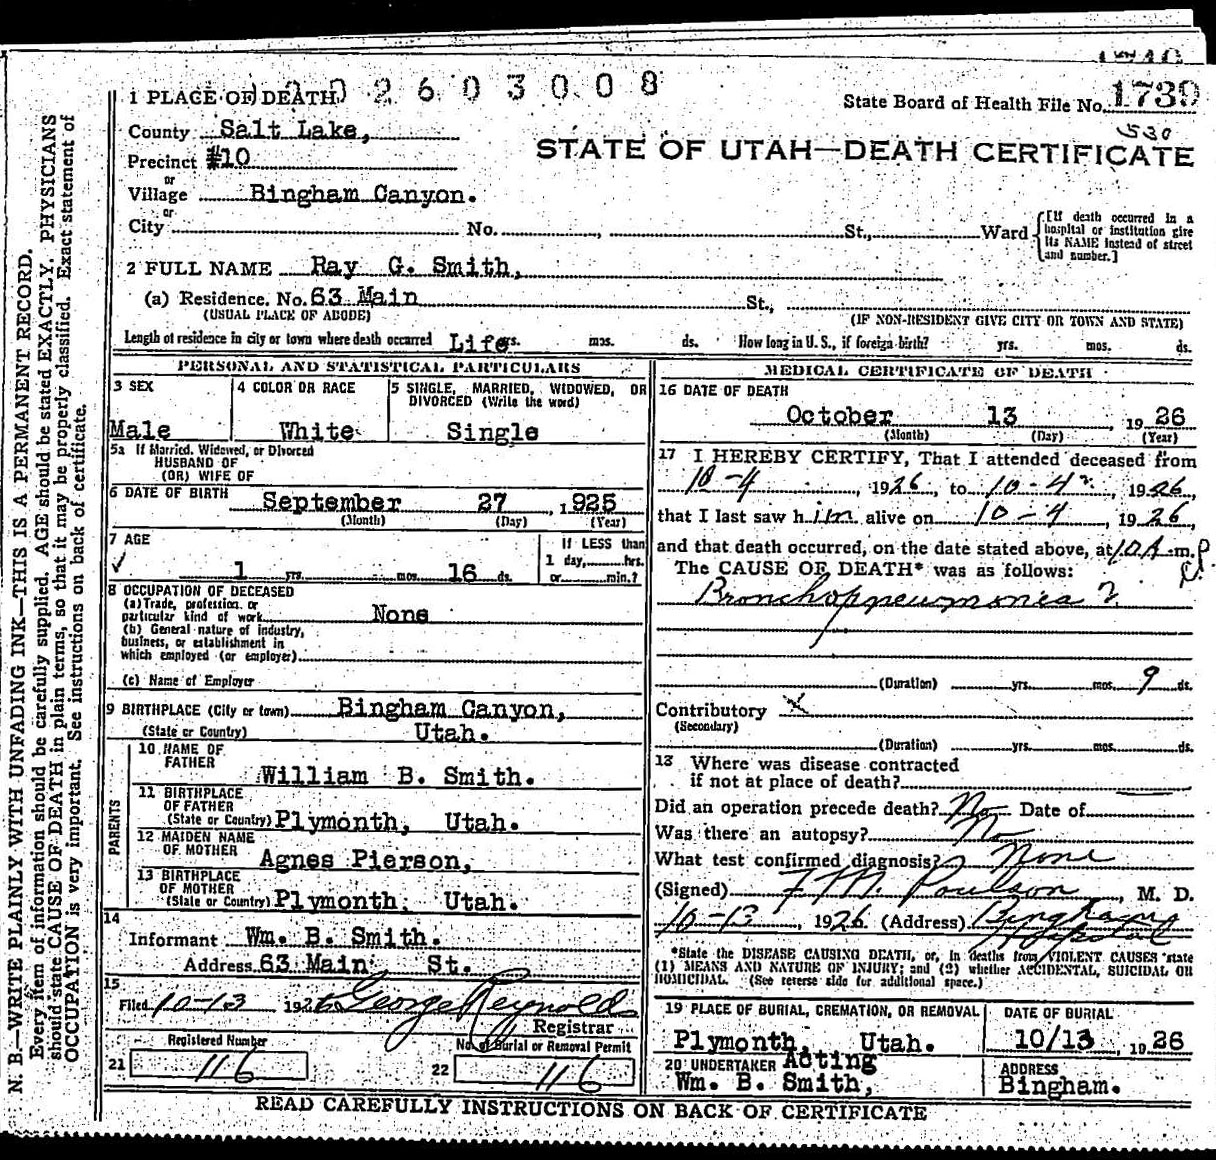 1 PLACE OF DEATH 2 6 0 3 0 0 8
State Board of Health File No. 1739
530
County Salt Lake,
STATE OF UTAH—DEATH CERTIFICATE
Precinct #10
or
Village Bingham Canyon.
or
City No. , St., Ward
[If death occurred in a hospital or institution give its NAME instead of street and number.]
2 FULL NAME Ray G. Smith,
(a) Residence. No. 63 Main St.,
(USUAL PLACE OF ABODE) (IF NON-RESIDENT GIVE CITY OR TOWN AND STATE)
Length of residence in city or town where death occurred Life yrs. mos. ds. How long in U. S., if foreign birth? yrs. mos. ds.
PERSONAL AND STATISTICAL PARTICULARS
3 SEX
Male
4 COLOR OR RACE
White
5 SINGLE, MARRIED, WIDOWED, OR
DIVORCED (Write the word)
Single
5a If Married, Widowed, or Divorced
HUSBAND OF
(OR) WIFE OF
6 DATE OF BIRTH September 27, 1925
(Month) (Day) (Year)
7 AGE
1 yrs. mos. 16 ds.
If LESS than
1 day, hrs.
or min.?
8 OCCUPATION OF DECEASED
(a) Trade, profession, or
particular kind of work None
(b) General nature of industry,
business, or establishment in
which employed (or employer)
(c) Name of Employer
9 BIRTHPLACE (City or town) Bingham Canyon,
(State or Country) Utah.
PARENTS
10 NAME OF
FATHER William B. Smith.
11 BIRTHPLACE
OF FATHER
(State or Country) Plymonth, Utah.
12 MAIDEN NAME
OF MOTHER Agnes Pierson,
13 BIRTHPLACE
OF MOTHER
(State or Country) Plymonth, Utah.
14
Informant Wm. B. Smith.
Address 63 Main St.
15
Filed 10-13 1926 George Reynolds
Registrar
Registered Number
21 116
No. of Burial or Removal Permit
22 116
MEDICAL CERTIFICATE OF DEATH
16 DATE OF DEATH
October 13, 1926
(Month) (Day) (Year)
17 I HEREBY CERTIFY, That I attended deceased from
10-4, 1926, to 10-4, 1926,
that I last saw him alive on 10-4, 1926,
and that death occurred, on the date stated above, at 10A m.
The CAUSE OF DEATH* was as follows:
Bronchopneumonia ?
(Duration) yrs. mos. 9 ds.
Contributory x
(Secondary)
(Duration) yrs. mos. ds.
18 Where was disease contracted
if not at place of death?
Did an operation precede death? No Date of
Was there an autopsy? No
What test confirmed diagnosis? None
(Signed) F. M. Poulson, M. D.
10-13, 1926 (Address) Bingham
Hospital
*State the DISEASE CAUSING DEATH, or, in deaths from VIOLENT CAUSES state
(1) MEANS AND NATURE OF INJURY; and (2) whether ACCIDENTAL, SUICIDAL OR
HOMICIDAL. (See reverse side for additional space.)
19 PLACE OF BURIAL, CREMATION, OR REMOVAL
Plymonth, Utah.
DATE OF BURIAL
10/13, 1926
20 UNDERTAKER Acting
Wm. B. Smith,
ADDRESS
Bingham.
READ CAREFULLY INSTRUCTIONS ON BACK OF CERTIFICATE
N. B.—WRITE PLAINLY WITH UNFADING INK—THIS IS A PERMANENT RECORD.
Every item of information should be carefully supplied. AGE should be stated EXACTLY. PHYSICIANS
should state CAUSE OF DEATH in plain terms, so that it may be properly classified. Exact statement of
OCCUPATION is very important. See instructions on back of certificate.